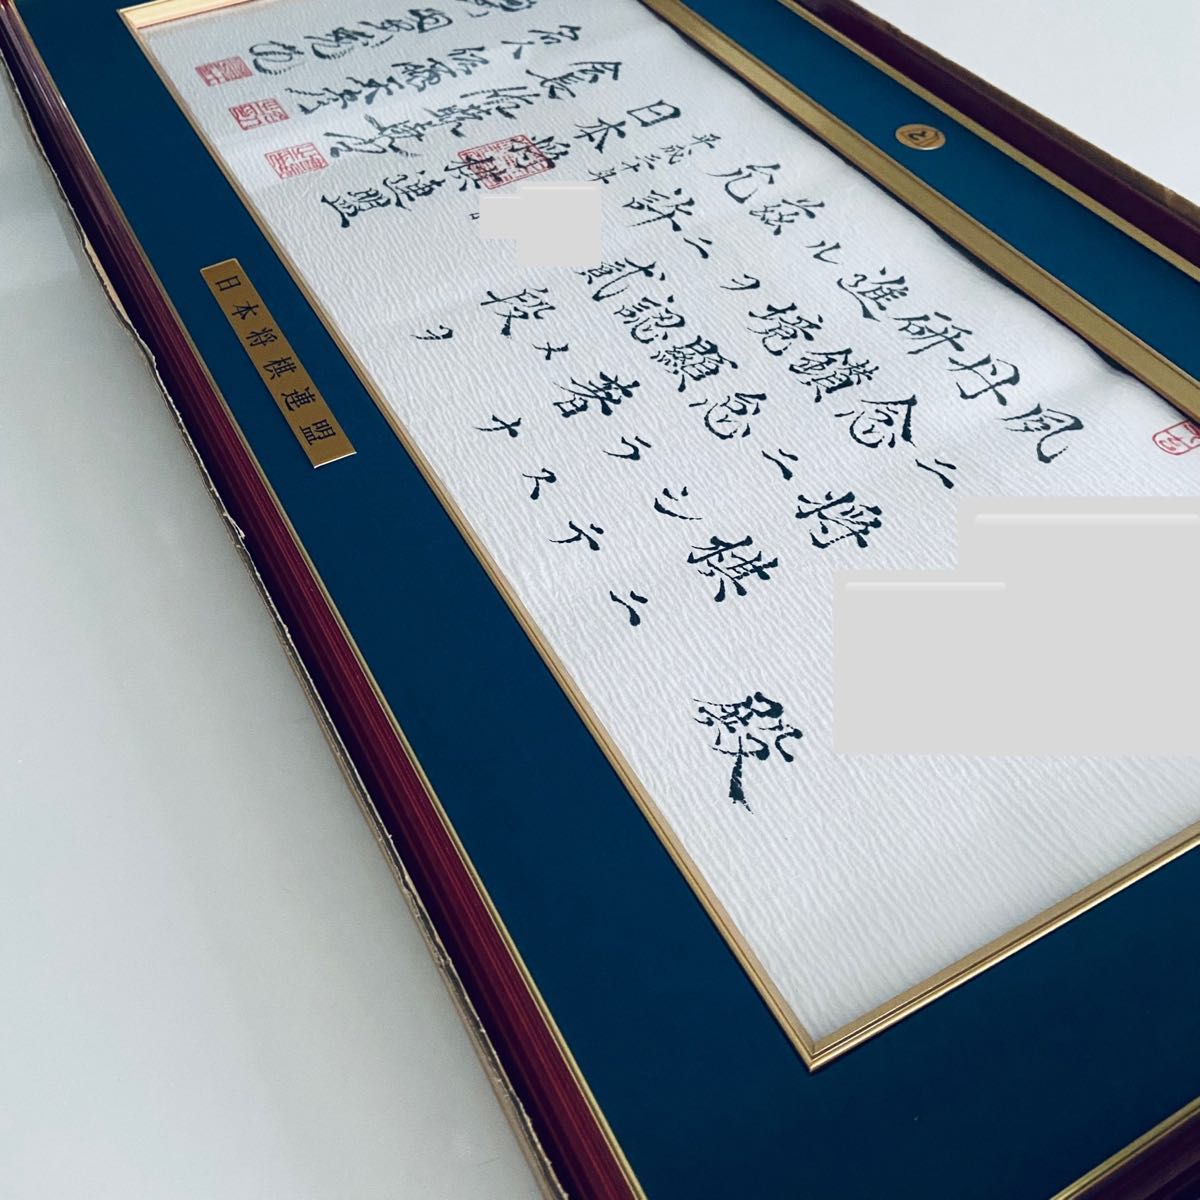 殿
夙ニ将棋ニ
丹念ニシテ
研鑽怠ラス
進境顕著ナ
ルヲ認メ
茲ニ貳段ヲ
允許
平成二十年
日本将棋連盟
会長
名人
日本将棋連盟